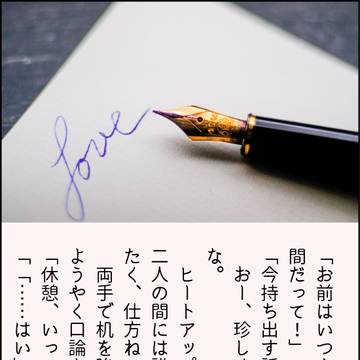 love
「お前はいつ
間だって!」
「今持ち出す
おー、珍し
な。
ヒートアップ
二人の間には
たく、仕方ね
両手で机を
ようやく口論
「休憩、いっ
「「……はい